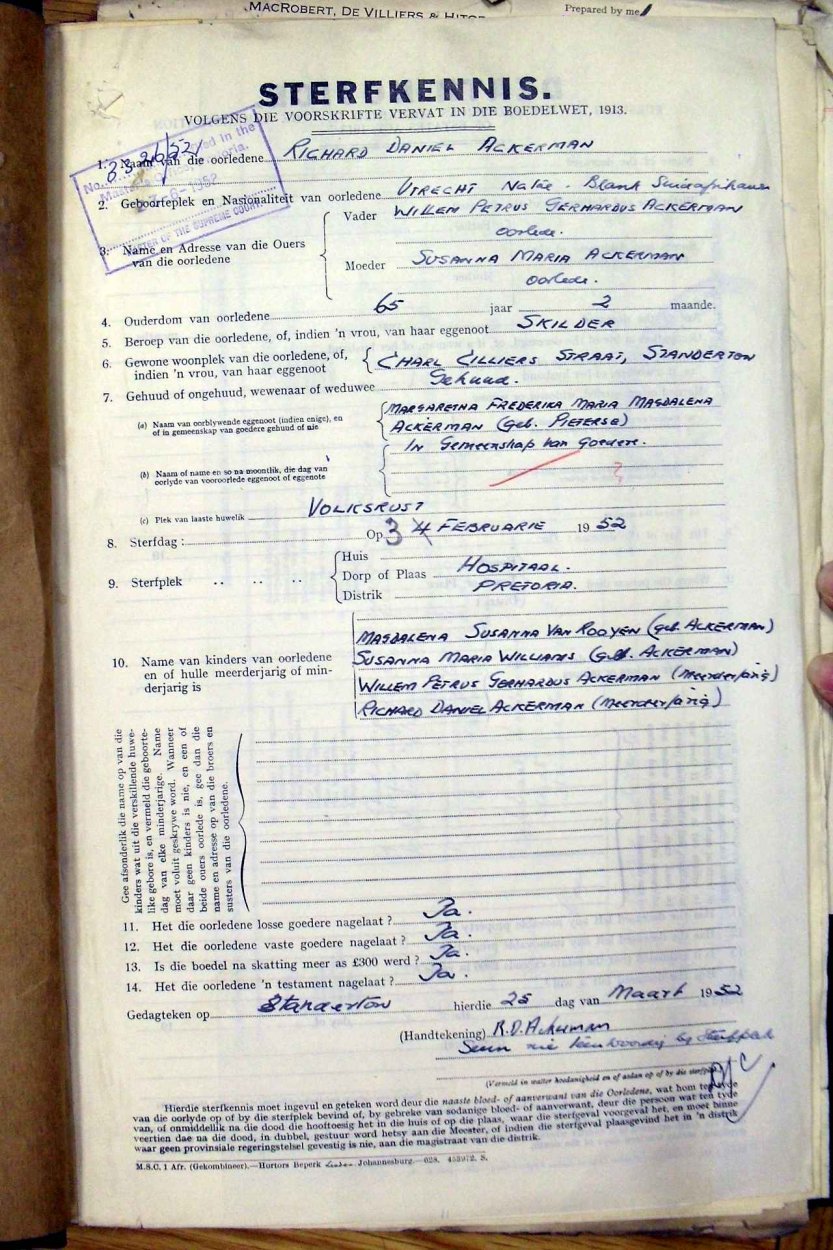 MACROBERT, DE VILLIERS &
Prepared by me
STERFKENNIS.
VOLGENS DIE VOORSKRIFTE VERVAT IN DIE BOEDELWET, 1913.
1. Naam van die oorledene RICHARD DANIEL ACKERMAN
No. in the
Master's
6 - 1952
MASTER OF THE SUPREME COURT
2. Geboorteplek en Nasionaliteit van oorledene UTRECHT Natal. Blank Suidafrikaner
3. Name en Adresse van die Ouers van die oorledene
Vader WILLEM PETRUS GERHARDUS ACKERMAN
oorlede.
Moeder SUSANNA MARIA ACKERMAN
oorlede.
4. Ouderdom van oorledene 65 jaar 2 maande.
5. Beroep van die oorledene, of, indien 'n vrou, van haar eggenoot SKILDER
6. Gewone woonplek van die oorledene, of,
indien 'n vrou, van haar eggenoot CHARL CILLIERS STRAAT, STANDERTON
7. Gehuud of ongehuud, wewenaar of weduwee Gehuud.
(a) Naam van oorblywende eggenoot (indien enige), en
of in gemeenskap van goedere gehuud of nie
MARGARETHA FREDERIKA MARIA MAGDALENA
ACKERMAN (geb. PIETERSE)
IN Gemeenskap van Goedere.
(b) Naam of name en so na moontlik, die dag van
oorlyde van vooroorlede eggenoot of eggenote
?
(c) Plek van laaste huwelik VOLKSRUST
8. Sterfdag : Op 3 4 FEBRUARIE 1952
9. Sterfplek .. .. ..
Huis
Dorp of Plaas HOSPITAAL.
Distrik PRETORIA.
10. Name van kinders van oorledene
en of hulle meerderjarig of min-
derjarig is
MAGDALENA SUSANNA VAN ROOYEN (geb. ACKERMAN)
SUSANNA MARIA WILLIAMS (geb. ACKERMAN)
WILLEM PETRUS GERHARDUS ACKERMAN (meerderjarig)
RICHARD DANIEL ACKERMAN (meerderjarig)
Gee afsonderlik die name op van die
kinders wat uit die verskillende huwe-
like gebore is, en vermeld die geboorte-
dag van elke minderjarige. Name
moet voluit geskrywe word. Wanneer
daar geen kinders is nie, en een of
beide ouers oorlede is, gee dan die
name en adresse op van die broers en
susters van die oorledene.
11. Het die oorledene losse goedere nagelaat ? Ja.
12. Het die oorledene vaste goedere nagelaat ? Ja.
13. Is die boedel na skatting meer as £300 werd ? Ja.
14. Het die oorledene 'n testament nagelaat ? Ja.
Gedagteken op Standerton hierdie 25 dag van Maart 1952
(Handtekening) R.D. Ackerman
Seun nie teenwoordig by sterfplek
(Vermeld in watter hoedanigheid en of aldan op of by die sterfplek)
Hierdie sterfkennis moet ingevul en geteken word deur die naaste bloed- of aanverwant van die Oorledene, wat hom ten tyde
van die oorlyde op of by die sterfplek bevind of, by gebreke van sodanige bloed- of aanverwant, deur die persoon wat ten tyde
van, of onmiddellik na die dood die hooftoesig het in die huis of op die plaas, waar die sterfgeval voorgeval het, en moet binne
veertien dae na die dood, in dubbel, gestuur word hetsy aan die Meester, of indien die sterfgeval plaasgevind het in 'n distrik
waar geen provinsiale regeringstelsel gevestig is nie, aan die magistraat van die distrik.
M.S.C. 1 Afr. (Gekombineer).—Hortors Beperk Johannesburg.—628. 453972. S.